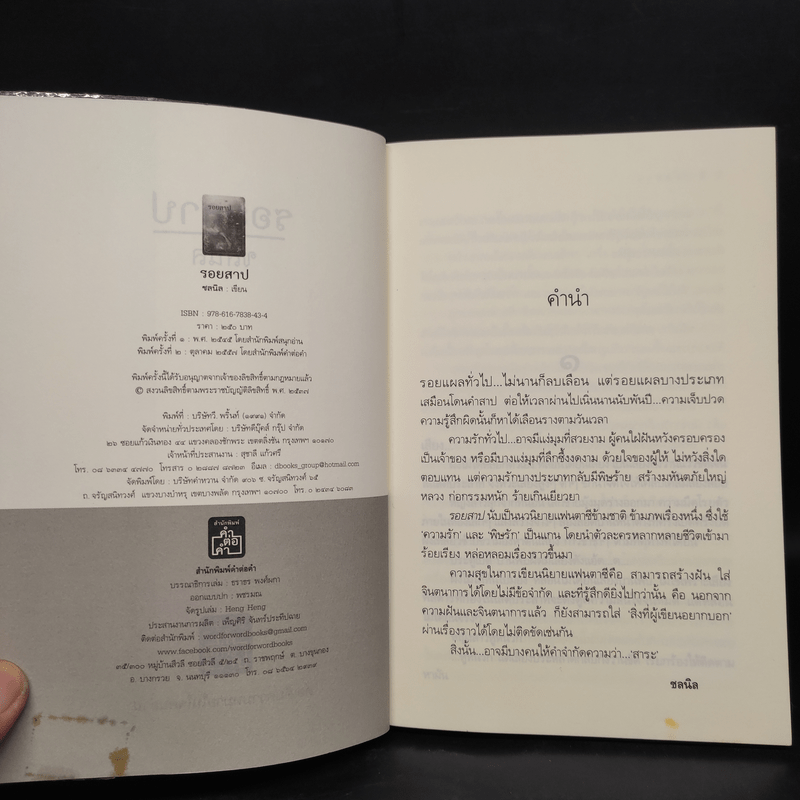 รอยสาป
รอยสาป
ชลนิล : เขียน
ISBN : 978-616-7838-43-4
ราคา : ๒๕๐ บาท
พิมพ์ครั้งที่ ๑ : พ.ศ. ๒๕๔๕ โดยสำนักพิมพ์สนุกอ่าน
พิมพ์ครั้งที่ ๒ : ตุลาคม ๒๕๕๗ โดยสำนักพิมพ์คำต่อคำ
พิมพ์ครั้งนี้ได้รับอนุญาตจากเจ้าของลิขสิทธิ์ตามกฎหมายแล้ว
© สงวนลิขสิทธิ์ตามพระราชบัญญัติลิขสิทธิ์ พ.ศ. ๒๕๓๗
พิมพ์ที่ : บริษัทวี. พริ้นท์ (๑๙๙๑) จำกัด
จัดจำหน่ายทั่วประเทศโดย : บริษัทดีบุ๊คส์ กรุ๊ป จำกัด
๒๖ ซอยแก้วเงินทอง ๔๔ แขวงคลองชักพระ เขตตลิ่งชัน กรุงเทพฯ ๑๐๑๗๐
เจ้าหน้าที่ประสานงาน : สุชาลี แก้วศรี
โทร. ๐๘ ๖๓๓๔ ๔๗๗๐ โทรสาร ๐ ๒๘๘๗ ๘๗๒๓ อีเมล : dbooks_group@hotmail.com
จัดพิมพ์โดย : บริษัทตำหวาน จำกัด ๓๐๖ ซ. จรัญสนิทวงศ์ ๖๕
ถ. จรัญสนิทวงศ์ แขวงบางบำหรุ เขตบางพลัด กรุงเทพฯ ๑๐๗๐๐ โทร. ๐ ๒๔๓๔ ๖๐๘๓
สำนักพิมพ์
คำ
ต่อ
คำ
สำนักพิมพ์คำต่อคำ
บรรณาธิการเล่ม : ธราธร พงศ์ผกา
ออกแบบปก : พชรมณ
จัดรูปเล่ม : Heng Heng
ประสานงานการผลิต : เพ็ญศิริ จันทร์ประทีปฉาย
ติดต่อสำนักพิมพ์ : wordforwordbooks@gmail.com
www.facebook.com/wordforwordbooks
๓๕/๓๐๐ หมู่บ้านสิวลี ซอยสิวลี ๕/๒๕ ถ. ราชพฤกษ์ ต. บางขุนกอง
อ. บางกรวย จ. นนทบุรี ๑๑๑๓๐ โทร. ๐๘ ๖๕๑๔ ๒๙๓๙
คำนำ
รอยแผลทั่วไป...ไม่นานก็ลบเลือน แต่รอยแผลบางประเภท
เสมือนโดนคำสาป ต่อให้เวลาผ่านไปเนิ่นนานนับพันปี...ความเจ็บปวด
ความรู้สึกผิดนั้นก็หาได้เลือนรางตามวันเวลา
ความรักทั่วไป...อาจมีแง่มุมที่สวยงาม ผู้คนใฝ่ฝันหวังครอบครอง
เป็นเจ้าของ หรือมีบางแง่มุมที่ลึกซึ้งงดงาม ด้วยใจของผู้ให้ ไม่หวังสิ่งใด
ตอบแทน แต่ความรักบางประเภทกลับมีพิษร้าย สร้างมหันตภัยใหญ่
หลวง ก่อกรรมหนัก ร้ายเกินเยียวยา
รอยสาป นับเป็นนวนิยายแฟนตาซีข้ามชาติ ข้ามภพเรื่องหนึ่ง ซึ่งใช้
‘ความรัก’ และ ‘พิษรัก’ เป็นแกน โดยนำตัวละครหลากหลายชีวิตเข้ามา
ร้อยเรียง หล่อหลอมเรื่องราวขึ้นมา
ความสุขในการเขียนนิยายแฟนตาซีคือ สามารถสร้างฝัน ใส่
จินตนาการได้โดยไม่มีข้อจำกัด และที่รู้สึกดียิ่งไปกว่านั้น คือ นอกจาก
ความฝันและจินตนาการแล้ว ก็ยังสามารถใส่ ‘สิ่งที่ผู้เขียนอยากบอก’
ผ่านเรื่องราวได้โดยไม่ติดขัดเช่นกัน
สิ่งนั้น...อาจมีบางคนให้คำจำกัดความว่า...‘สาระ’
ชลนิล